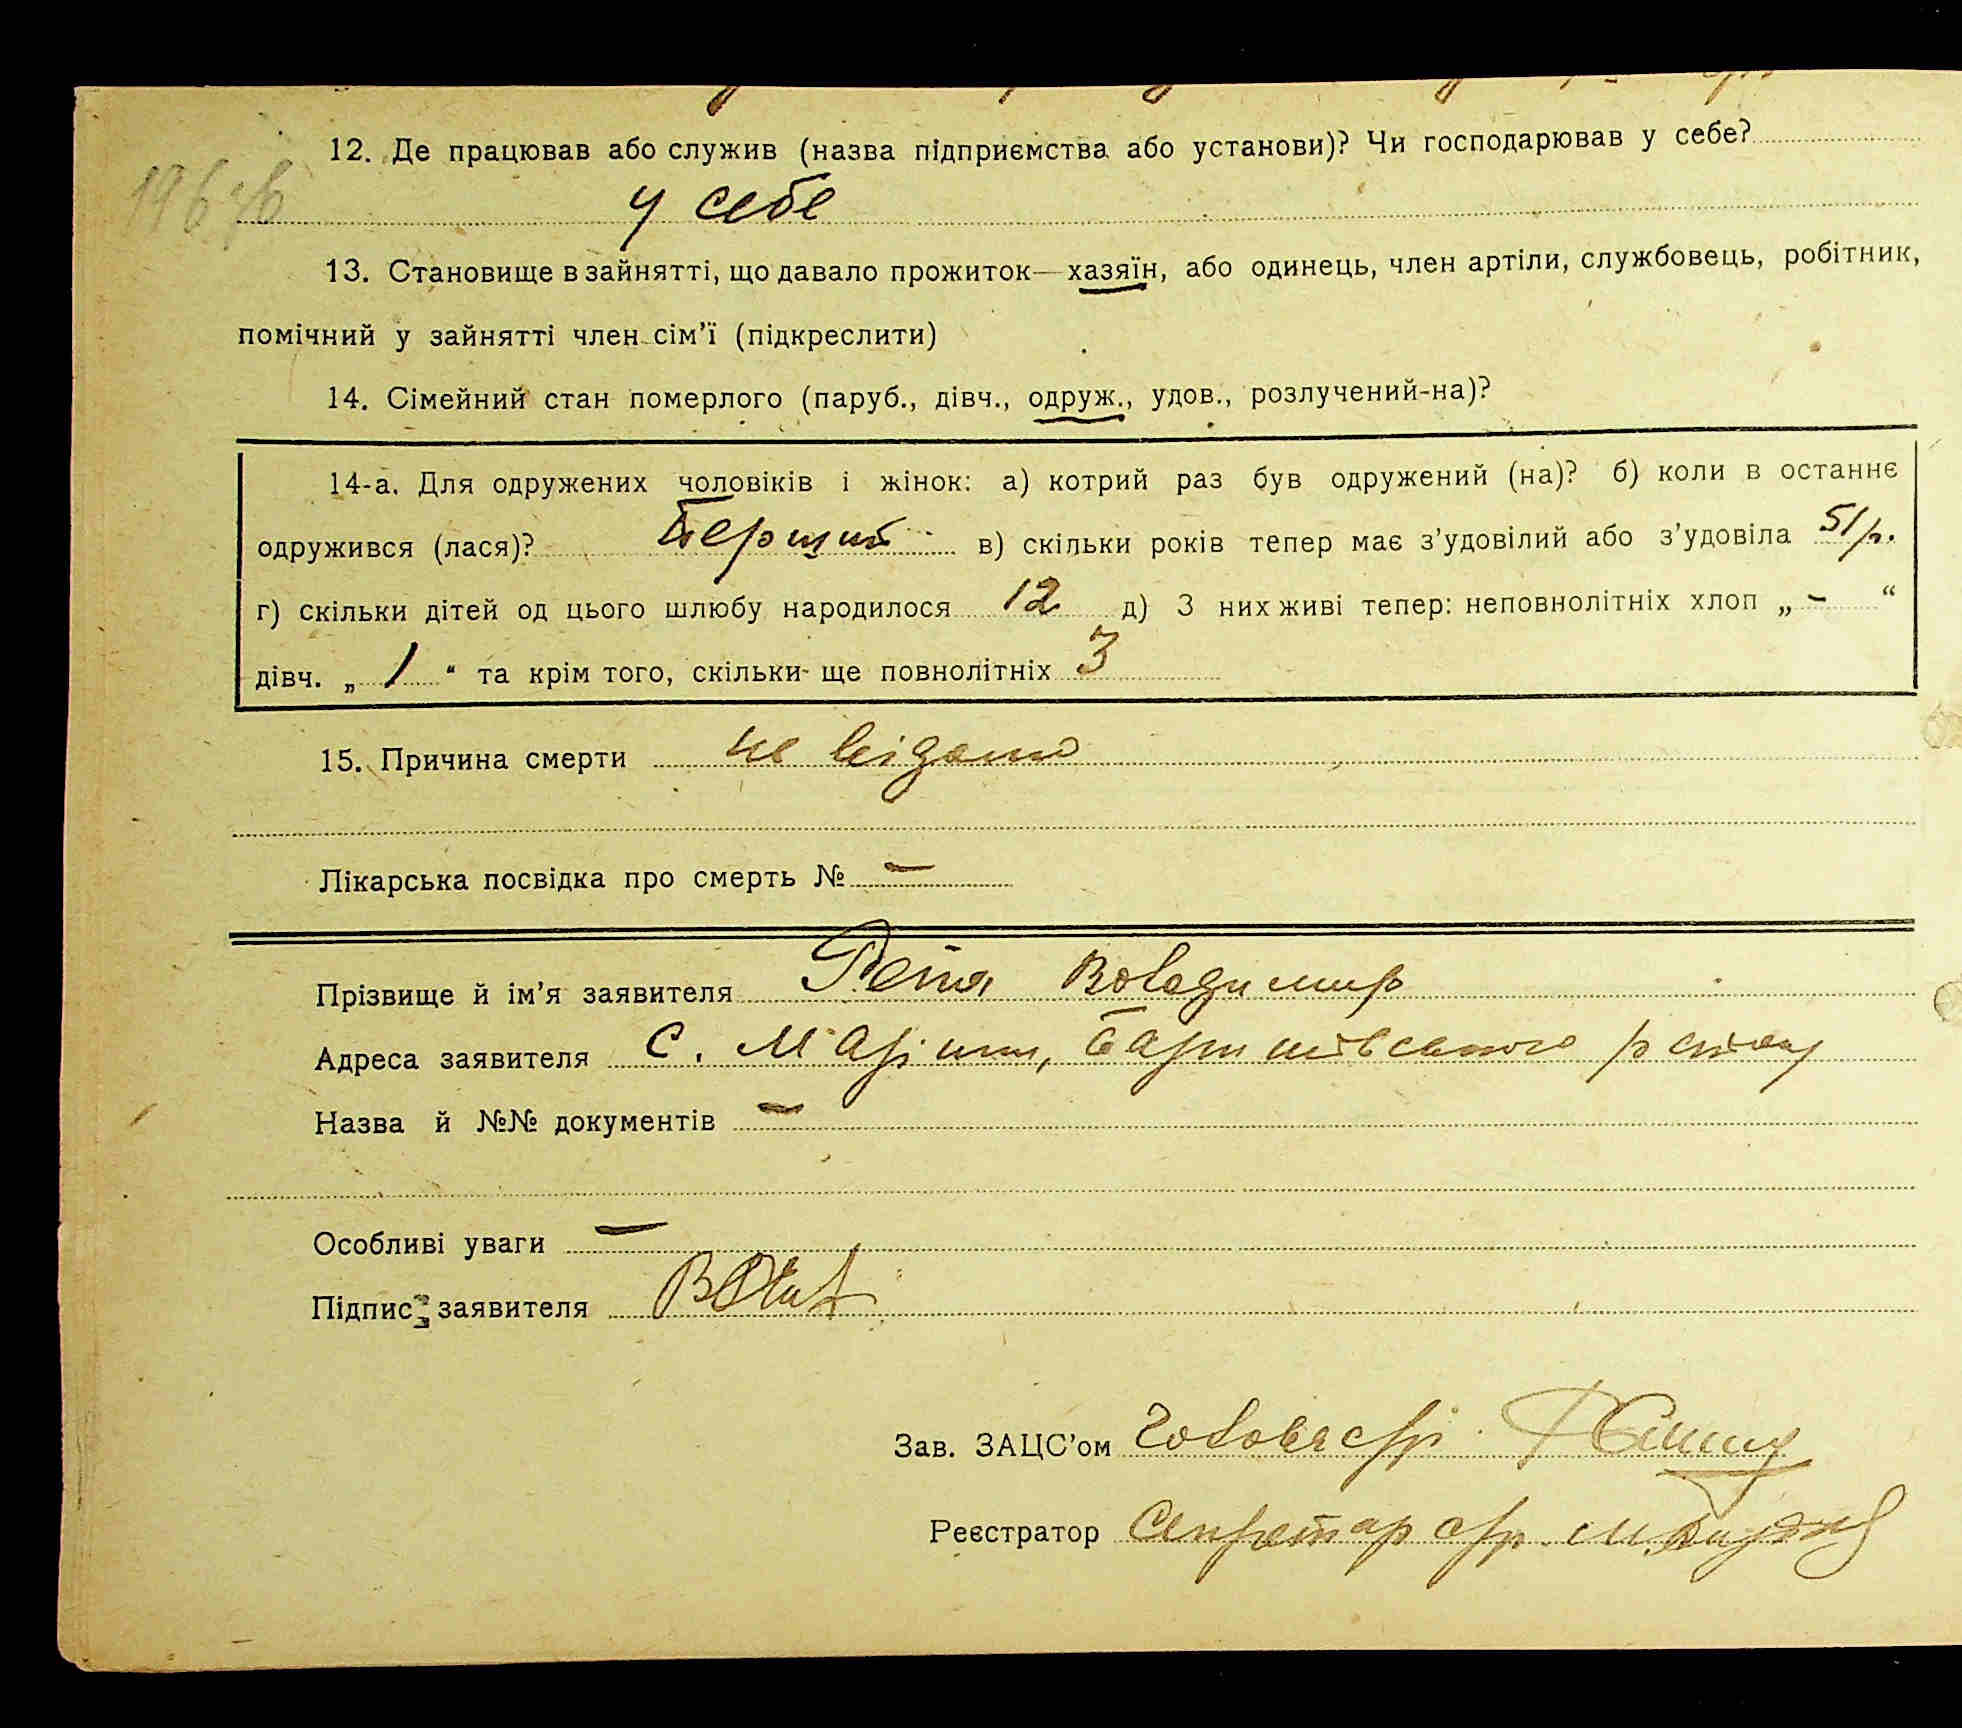 12. Де працював або служив (назва підприємства або установи)? Чи господарював у себе?
у себе
13. Становище в зайнятті, що давало прожиток—хазяїн, або одинець, член артіли, службовець, робітник,
помічний у зайнятті член сім’ї (підкреслити)
14. Сімейний стан померлого (паруб., дівч., одруж., удов., розлучений-на)?
14-а. Для одружених чоловіків і жінок: а) котрий раз був одружений (на)? б) коли в останнє
одружився (лася)? Перший в) скільки років тепер має з’удовілий або з’удовіла 51 р.
г) скільки дітей од цього шлюбу народилося 12 д) З них живі тепер: неповнолітніх хлоп „ - “
дівч. „ 1 “ та крім того, скільки ще повнолітніх 3
15. Причина смерти не відомо
Лікарська посвідка про смерть № —
Прізвище й ім’я заявителя Володимир
Адреса заявителя с. Мар', Баришівського району
Назва й №№ документів —
Особливі уваги —
Підпис заявителя
Зав. ЗАЦС’ом Голова с/р.
Реєстратор Секретар с/р.